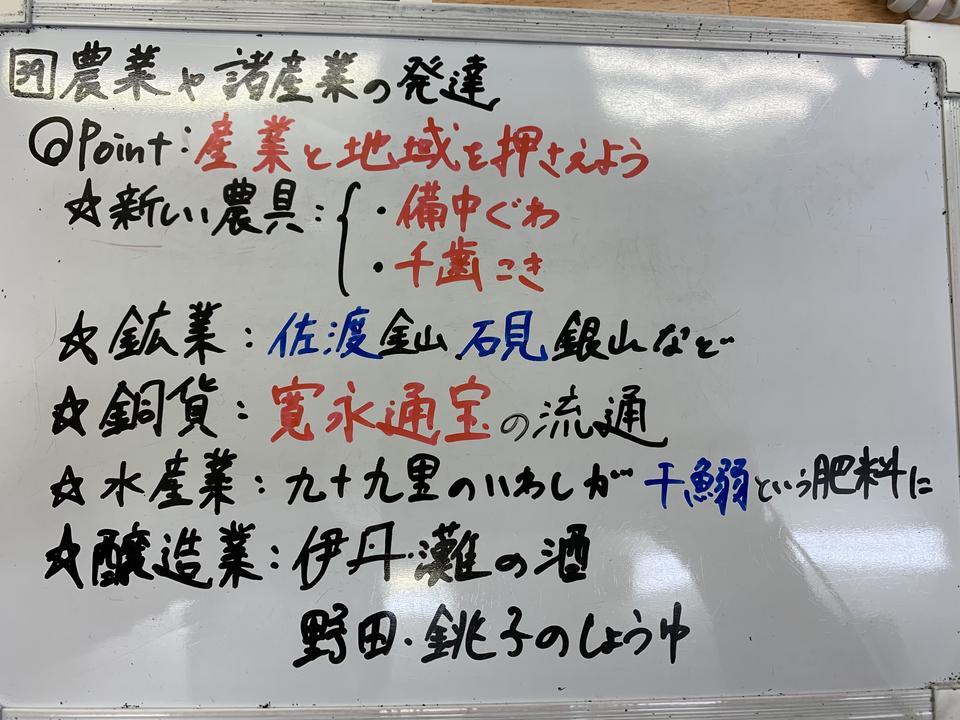 39 農業や諸産業の発達
◎Point:産業と地域を押さえよう
☆新しい農具:{・備中ぐわ
・千歯こき
☆鉱業:佐渡金山 石見銀山など
☆銅貨:寛永通宝の流通
☆水産業:九十九里のいわしが干鰯という肥料に
☆醸造業:伊丹・灘の酒
野田・銚子のしょうゆ